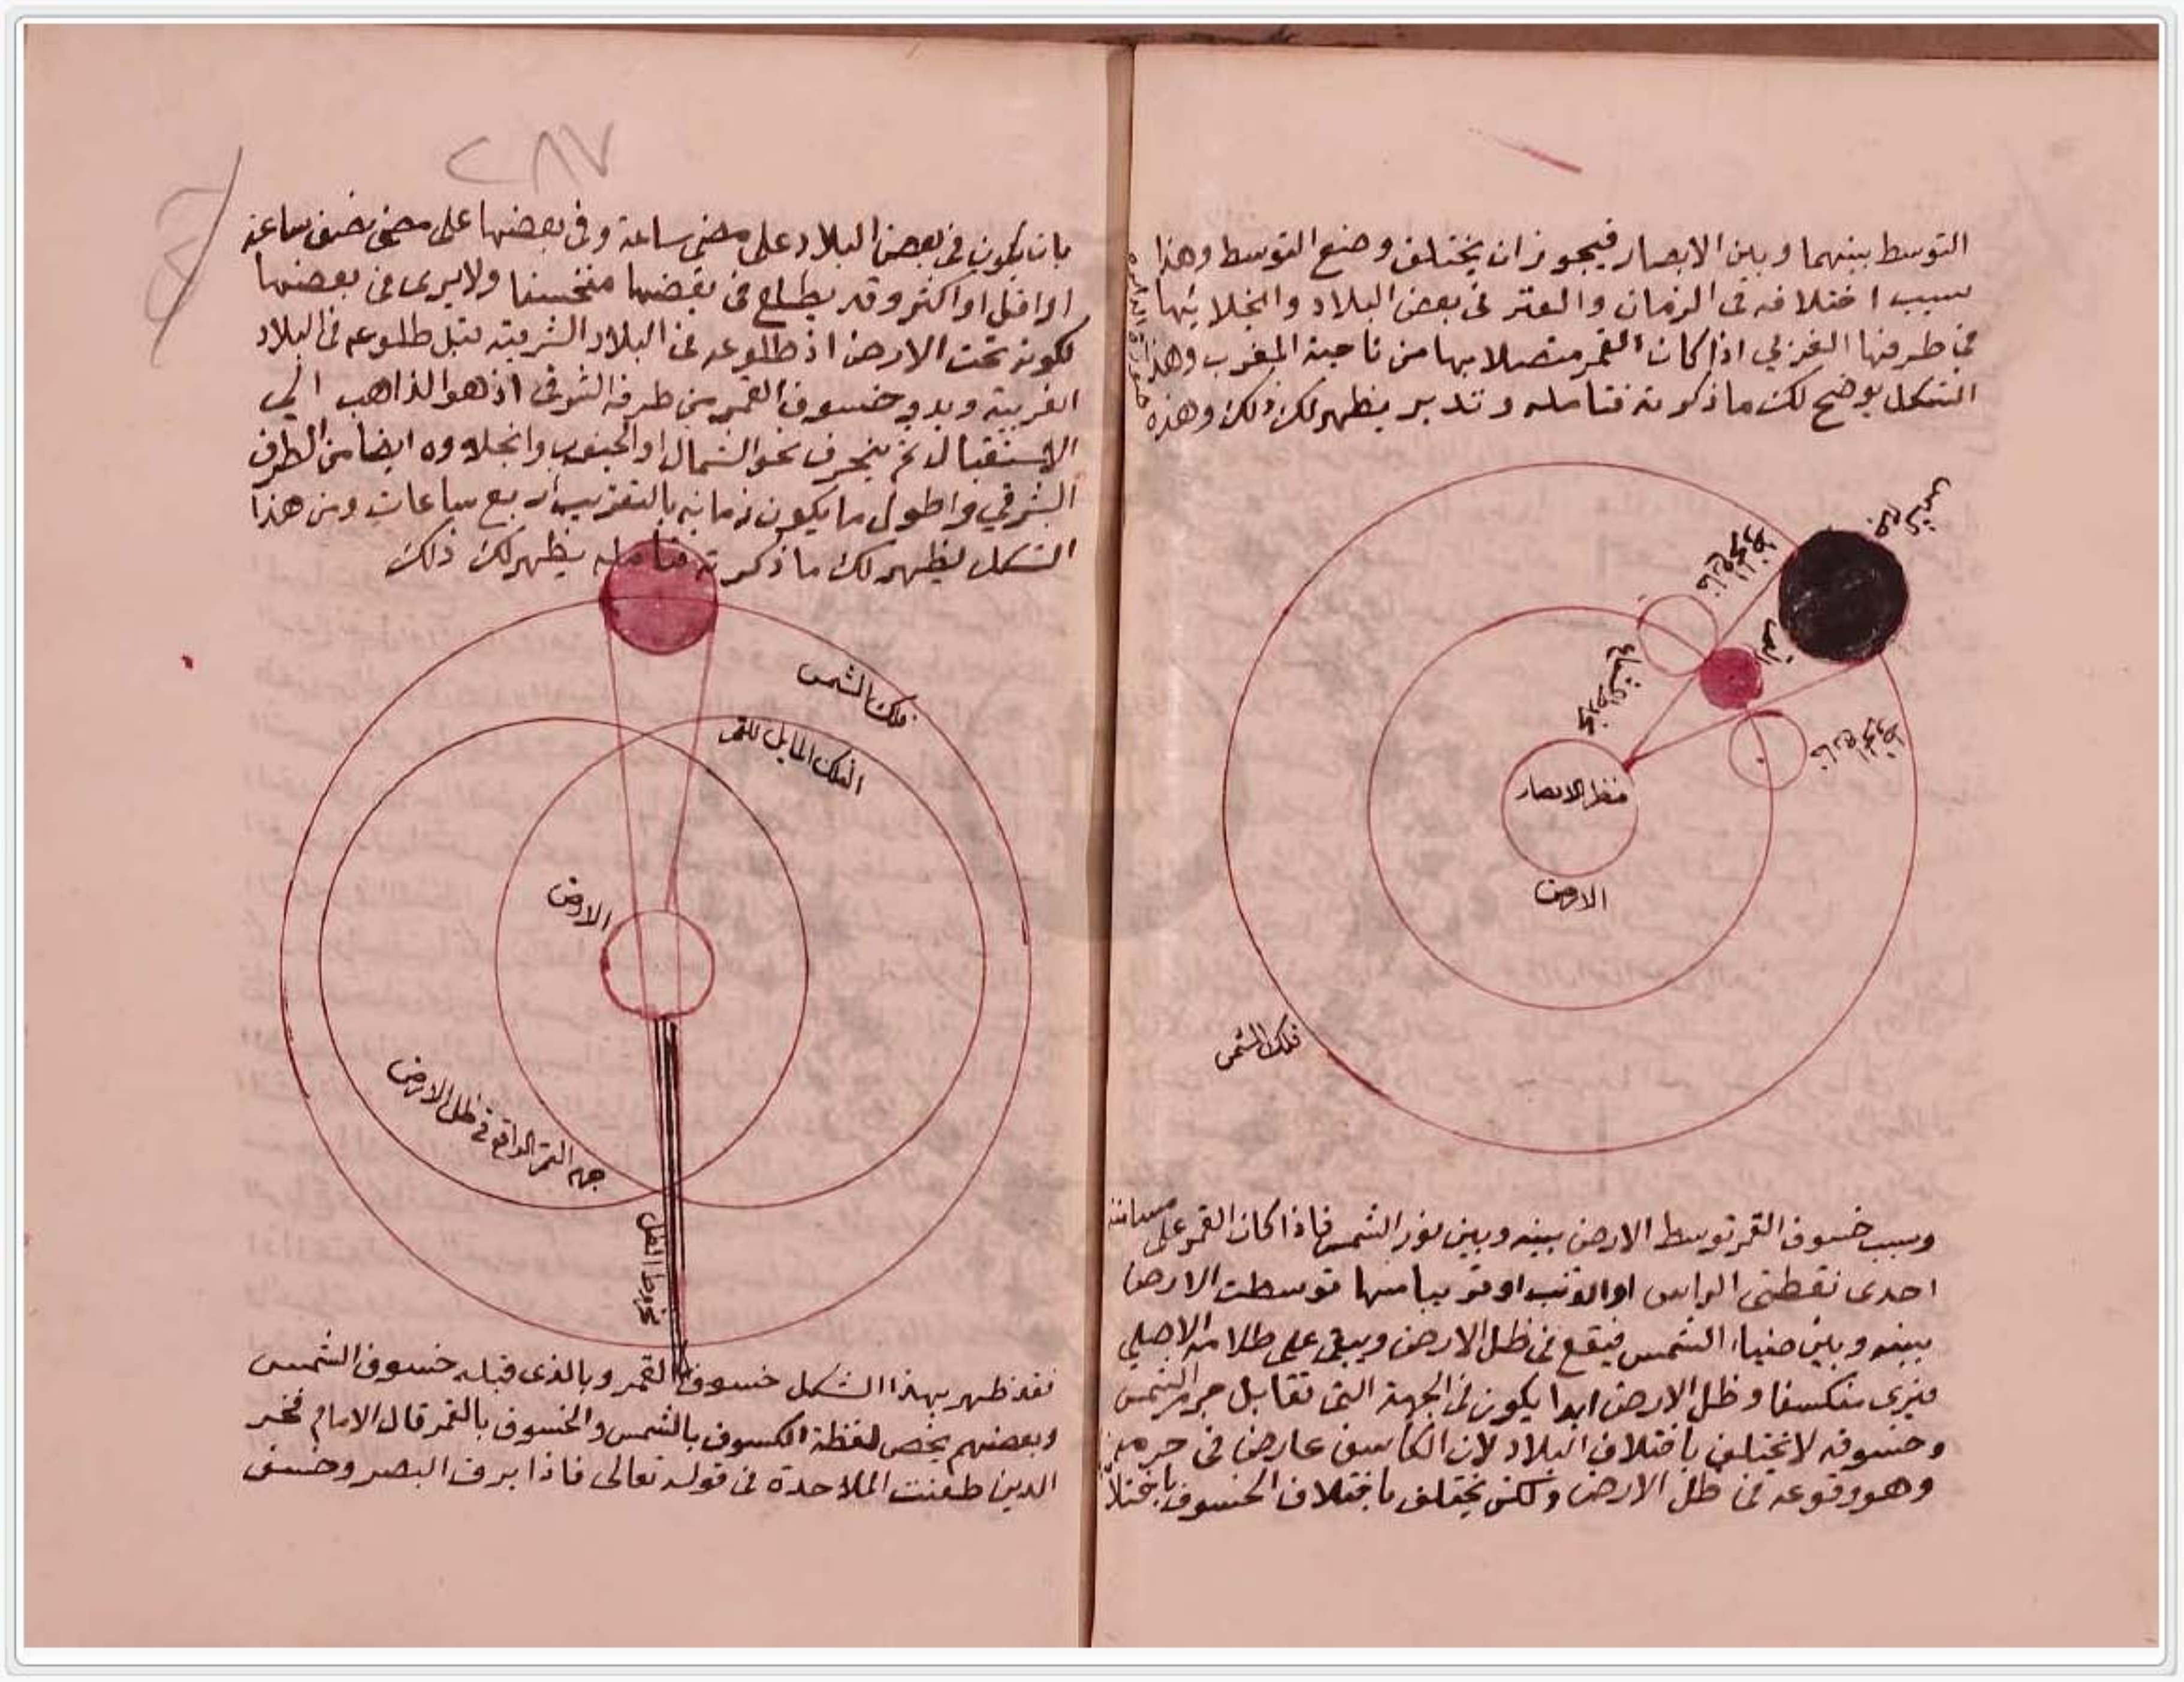 التوسط بينهما وبين الابصار فيجوز ان يختلف وضع التوسط وهذا
سبب اختلافه فى الزمان والقدر فى بعض البلاد وانجلائها
فى طرفها الغربي اذا كان القمر متصلا بها من ناحية المغرب وهذا
الشكل يوضح لك ما ذكرته فتامله وتدبر يظهر لك ذلك وهذه
جرم الشمس
القمر
مخروط الشعاع
منظر الابصار
الارض
فلك الشمس
وسبب خسوف القمر توسط الارض بينه وبين نور الشمس فاذا كان القمر على مسامتة
احدى نقطتى الراس او الذنب او قريبا منها توسطت الارض
بينه وبين ضياء الشمس فيقع فى ظل الارض ويبقى على ظلامه الاصلي
فيرى منكسفا وظل الارض ابدا يكون فى الجهة التى تقابل جرم الشمس
وخسوفه لا يختلف باختلاف البلاد لان الكاسف عارض فى جرمه
وهو وقوعه فى ظل الارض ولكن يختلف باختلاف الخسوف
٢٨٧
بان يكون فى بعض البلاد على مضى ساعة وفى بعضها على مضى نصف ساعة
او اقل او اكثر وقد يطلع فى بعضها منخسفا ولا يرى فى بعضها
لكونه تحت الارض اذ طلوعه فى البلاد الشرقية قبل طلوعه فى البلاد
الغربية وبدو خسوف القمر من طرفه الشرقى اذ هو الذاهب الى
الاستقبال ثم ينحرف نحو الشمال او الجنوب وانجلاوه ايضا من الطرف
الشرقي واطول ما يكون زمانه بالتقريب اربع ساعات ومن هذا
الشكل يظهر لك ما ذكرته فتامله يظهر لك ذلك
فلك الشمس
الفلك المايل للقمر
الارض
جهة القمر الواقع فى ظل الارض
مخروط الظل
فقد ظهر بهذا الشكل خسوف القمر وبالذى قبله خسوف الشمس
وبعضهم يخص لفظة الكسوف بالشمس والخسوف بالقمر قال الامام فخر
الدين طعنت الملاحدة فى قوله تعالى فاذا برق البصر وخسف